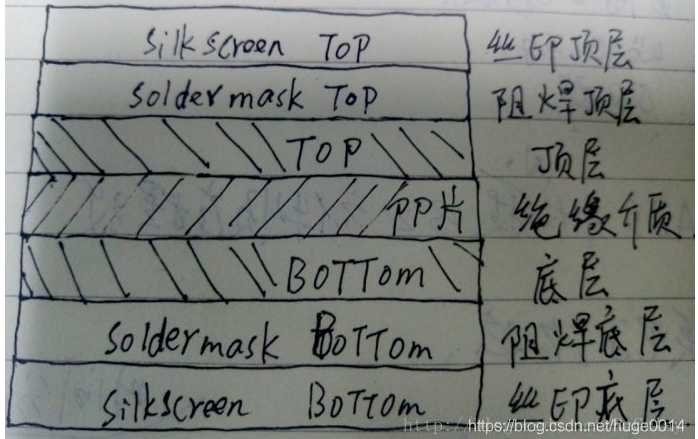 Silkscreen TOP 丝印顶层
Soldermask TOP 阻焊顶层
TOP 顶层
PP片 绝缘介质
BOTTom 底层
Soldermask BOTTom 阻焊底层
Silkscreen BOTTom 丝印底层
https://blog.csdn.net/huge0014